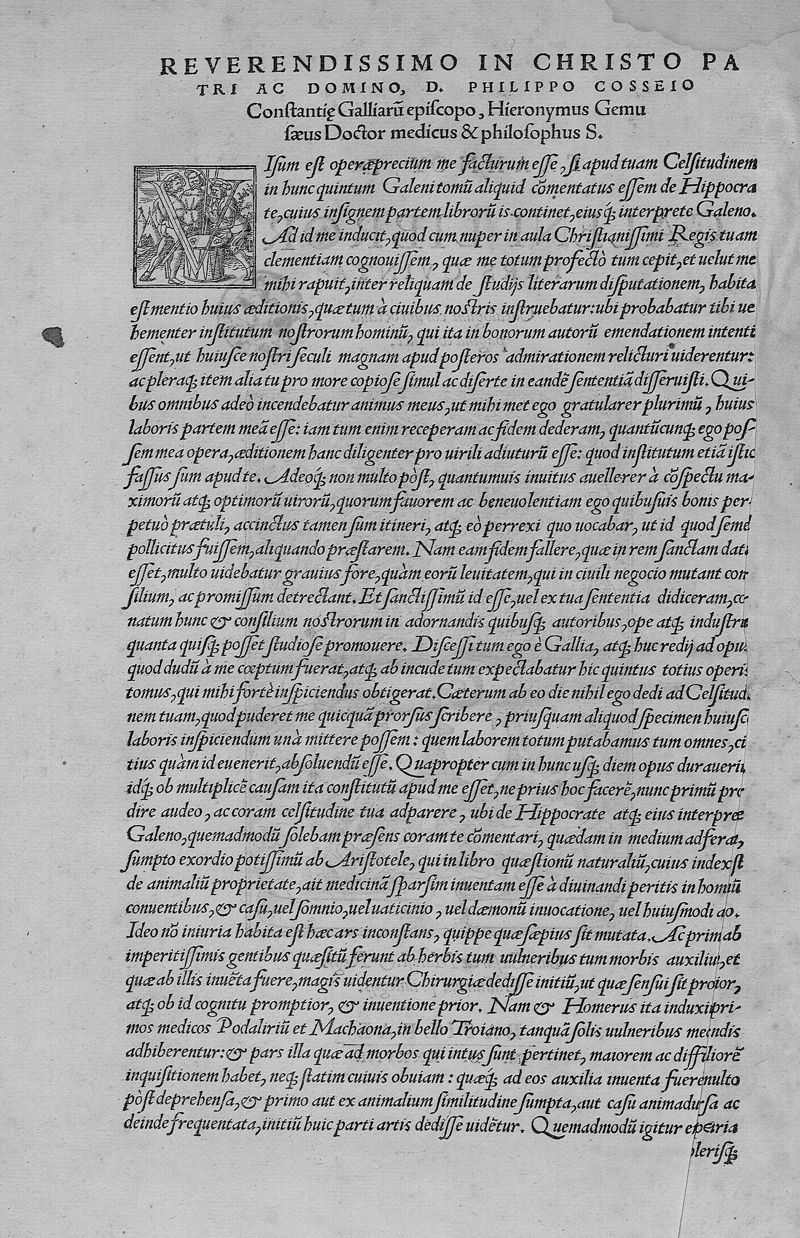 REVERENDISSIMO IN CHRISTO PA
TRI AC DOMINO, D. PHILIPPO COSSEIO
Conſtantię Galliarũ epiſcopo, Hieronymus Gemu
ſæus Doctor medicus & philoſophus S.
VIſum eſt operæprecium me facturum eſſe, ſi apud tuam Celſitudinem
in hunc quintum Galeni tomũ aliquid cõmentatus eſſem de Hippocra
te, cuius inſignem partem librorũ is continet, eiusq́; interprete Galeno.
Ad id me inducit, quod cum nuper in aula Chriſtianiſſimi Regis tuam
clementiam cognouiſſem, quæ me totum profectò tum cepit, et uelut me
mihi rapuit, inter reliquam de ſtudijs literarum diſputationem, habita
eſt mentio huius æditionis, quæ tum à ciuibus noſtris inſtruebatur: ubi probabatur tibi ue
hementer inſtitutum noſtrorum hominũ, qui ita in bonorum autorũ emendationem intenti
eſſent, ut huiuſce noſtri ſeculi magnam apud poſteros admirationem relicturi uiderentur:
ac pleraq́; item alia tu pro more copioſe ſimul ac diſerte in eandẽ ſententiã diſſeruiſti. Qui-
bus omnibus adeò incendebatur animus meus, ut mihi met ego gratularer plurimũ, huius
laboris partem meã eſſe: iam tum enim receperam ac fidem dederam, quantũcunq; ego poſ-
ſem mea opera, æditionem hanc diligenter pro uirili adiuturũ eſſe: quod inſtitutum etiã iſtic
faſſus ſum apud te. Adeoq́; non multo pòſt, quantumuis inuitus auellerer à cõſpectu ma-
ximorũ atq; optimorũ uirorũ, quorum fauorem ac beneuolentiam ego quibuſuis bonis per-
petuò prætuli, accinctus tamen ſum itineri, atq; eò perrexi quo uocabar, ut id quod ſemel
pollicitus fuiſſem, aliquando præſtarem. Nam eam fidem fallere, quæ in rem ſanctam dat
eſſet, multo uidebatur grauius fore, quàm eorũ leuitatem, qui in ciuili negocio mutant con
ſilium, ac promiſſum detrectant. Et ſanctiſſimũ id eſſe, uel ex tua ſententia didiceram, co
natum hunc & conſilium noſtrorum in adornandis quibuſq; autoribus, ope atq; induſtri
quanta quiſq; poſſet ſtudioſe promouere. Diſceſſi tum ego è Gallia, atq; huc redij ad opu
quod dudũ à me cœptum fuerat, atq; ab incude tum expectabatur hic quintus totius operi
tomus, qui mihi fortè inſpiciendus obtigerat. Cæterum ab eo die nihil ego dedi ad Celſitud
nem tuam, quod puderet me quicquã prorſus ſcribere, priuſquam aliquod ſpecimen huiuſc
laboris inſpiciendum unà mittere poſſem: quem laborem totum putabamus tum omnes, ci
tius quàm id euenerit, abſoluendũ eſſe. Quapropter cum in hunc uſq; diem opus durauerit,
idq́; ob multiplicẽ cauſam ita conſtitutũ apud me eſſet, ne prius hoc facerẽ, nunc primũ pro
dire audeo, ac coram celſitudine tua adparere, ubi de Hippocrate atq; eius interprete
Galeno, quemadmodũ ſolebam præſens coram te cõmentari, quædam in medium adferã,
ſumpto exordio potiſſimũ ab Ariſtotele, qui in libro quæſtionũ naturaliũ, cuius index eſt
de animaliũ proprietate, ait medicinã ſparſim inuentam eſſe à diuinandi peritis in homiũ
conuentibus, & caſu, uel ſomnio, uel uaticinio, uel dæmonũ inuocatione, uel huiuſmodi ao.
Ideo nõ iniuria habita eſt hæc ars inconſtans, quippe quæ ſæpius ſit mutata. Ac prim ab
imperitiſſimis gentibus quæſitũ ferunt ab herbis tum uulneribus tum morbis auxiliũ, et
quæ ab illis inuẽta fuere, magis uidentur Chirurgiæ dediſſe initiũ, ut quæ ſenſui ſit proior,
atq; ob id cognitu promptior, & inuentione prior. Nam & Homerus ita induxit pri-
mos medicos Podaliriũ et Machaona, in bello Troiano, tanquã ſolis uulneribus medendis
adhiberentur: & pars illa quæ ad morbos qui intus ſunt pertinet, maiorem ac difficiliorẽ
inquiſitionem habet, neq; ſtatim cuiuis obuiam: quæq́; ad eos auxilia inuenta fuere multo
pòſt deprehenſa, & primo aut ex animalium ſimilitudine ſumpta, aut caſu animaduerſa ac
deinde frequentata, initiũ huic parti artis dediſſe uidẽtur. Quemadmodũ igitur
pleriſq́;